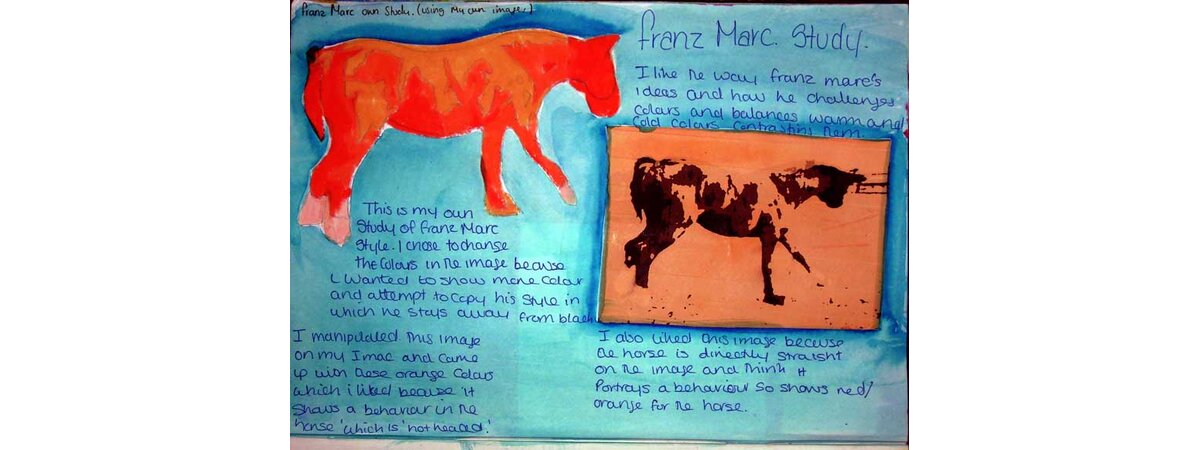 franz Marc own Study. (using My own image.)
franz Marc. Study.
I like the way franz marc's
ideas and how he challenges
colours and balances warm and
Cold colours contrasting them.
This is my own
Study of franz Marc
Style. I chose to change
the colours in the image because
I wanted to show more colour
and attempt to copy his style in
which he stays away from black
I manipulated this image
on my Imac and came
up with these orange colours
which i liked because it
shows a behaviour in the
horse 'which is 'hot headed.'
I also liked this image because
the horse is directly straight
on the image and think it
Portrays a behaviour so shows red/
orange for the horse.